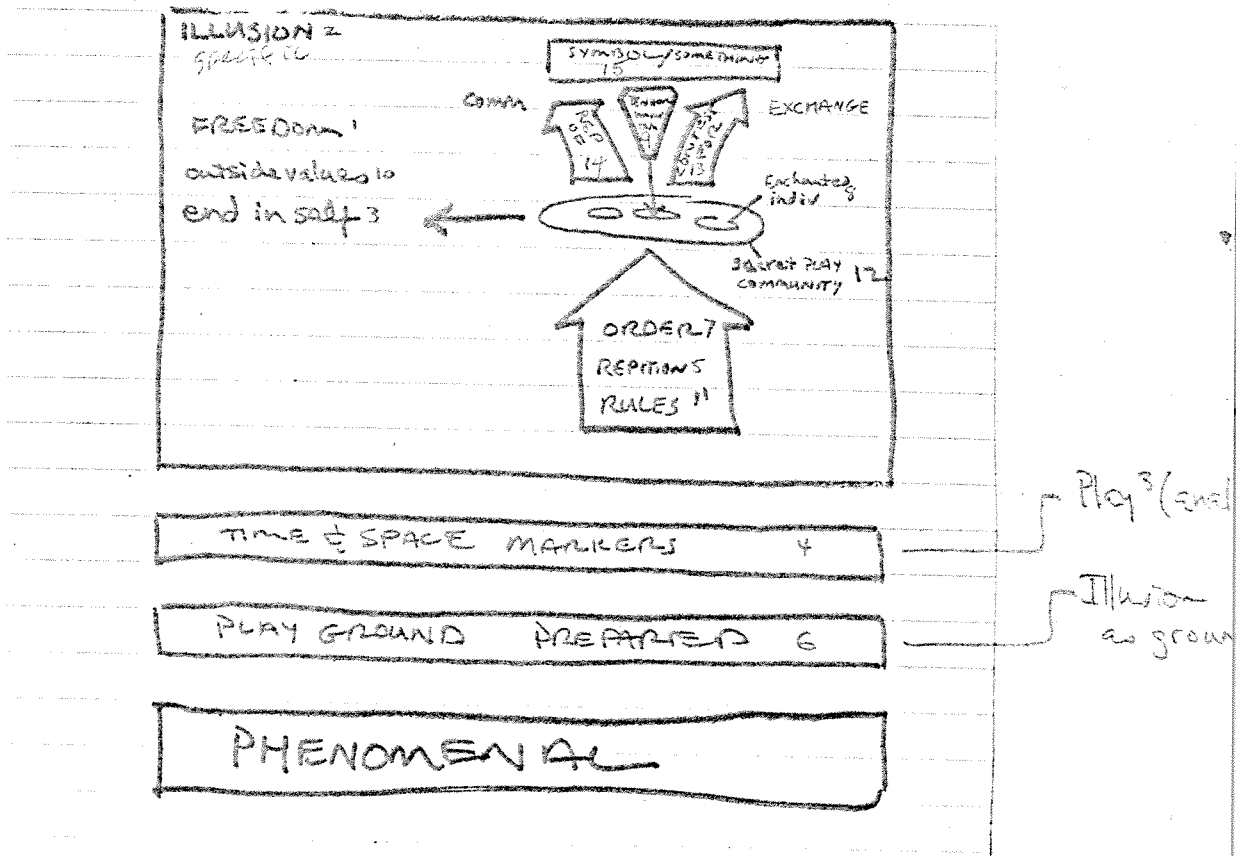 ILLUSION 2
specific
SYMBOL/SOMETHING
15
COMM
EXCHANGE
REP
OF
14
13
FREEDOM 1
outside values 10
end in self 3
Enchanted
indiv
Secret PLAY
COMMUNITY 12
ORDER 7
REPITION 5
RULES 11
TIME & SPACE MARKERS 4
Play 3 (end
PLAY GROUND PREPARED 6
Illusion
as groun
PHENOMENAL